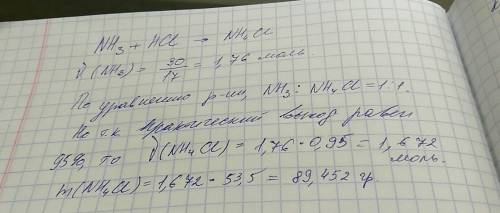 NH₃ + HCl → NH₄Cl
ν(NH₃) = 30/17 = 1,76 моль.
По уравнению р-ии, NH₃ : NH₄Cl = 1:1.
Но т.к практический выход равен
95%, то ν(NH₄Cl) = 1,76 · 0,95 = 1,672 моль.
m(NH₄Cl) = 1,672 · 53,5 = 89,452 гр.